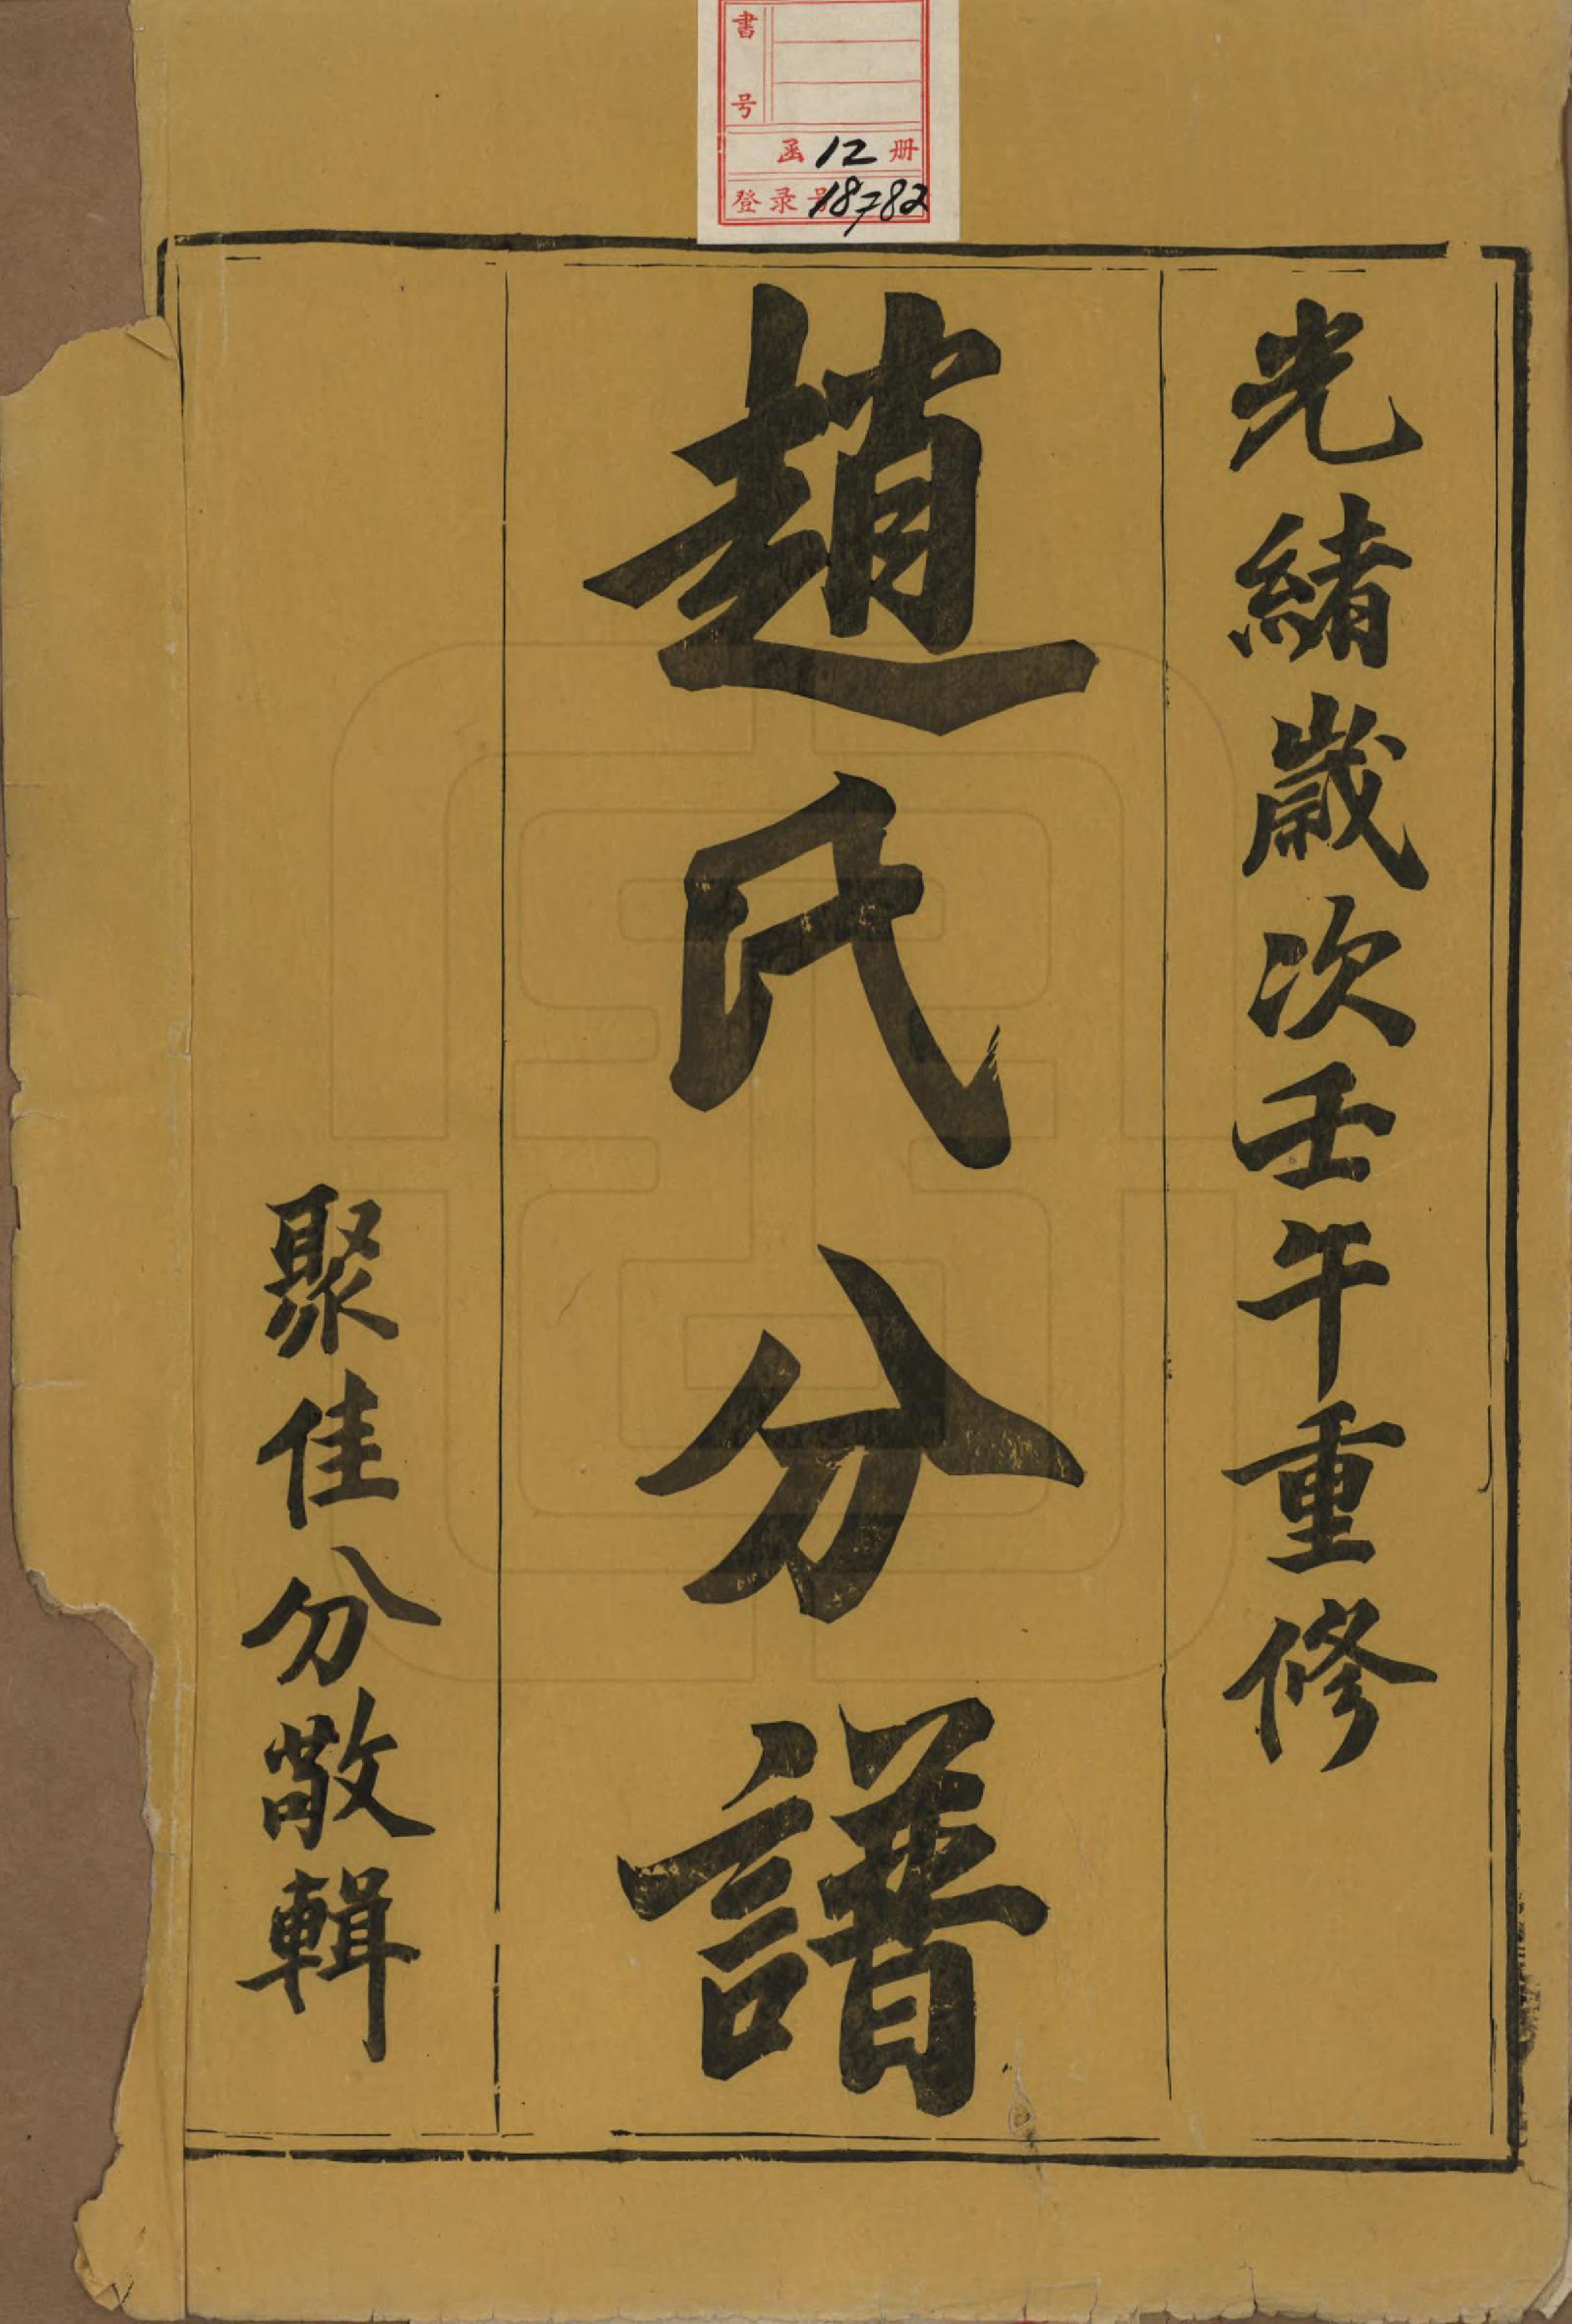 書号
函12册
登录号18782
光緒歲次壬午重修
趙氏分譜
聚佳分敬輯